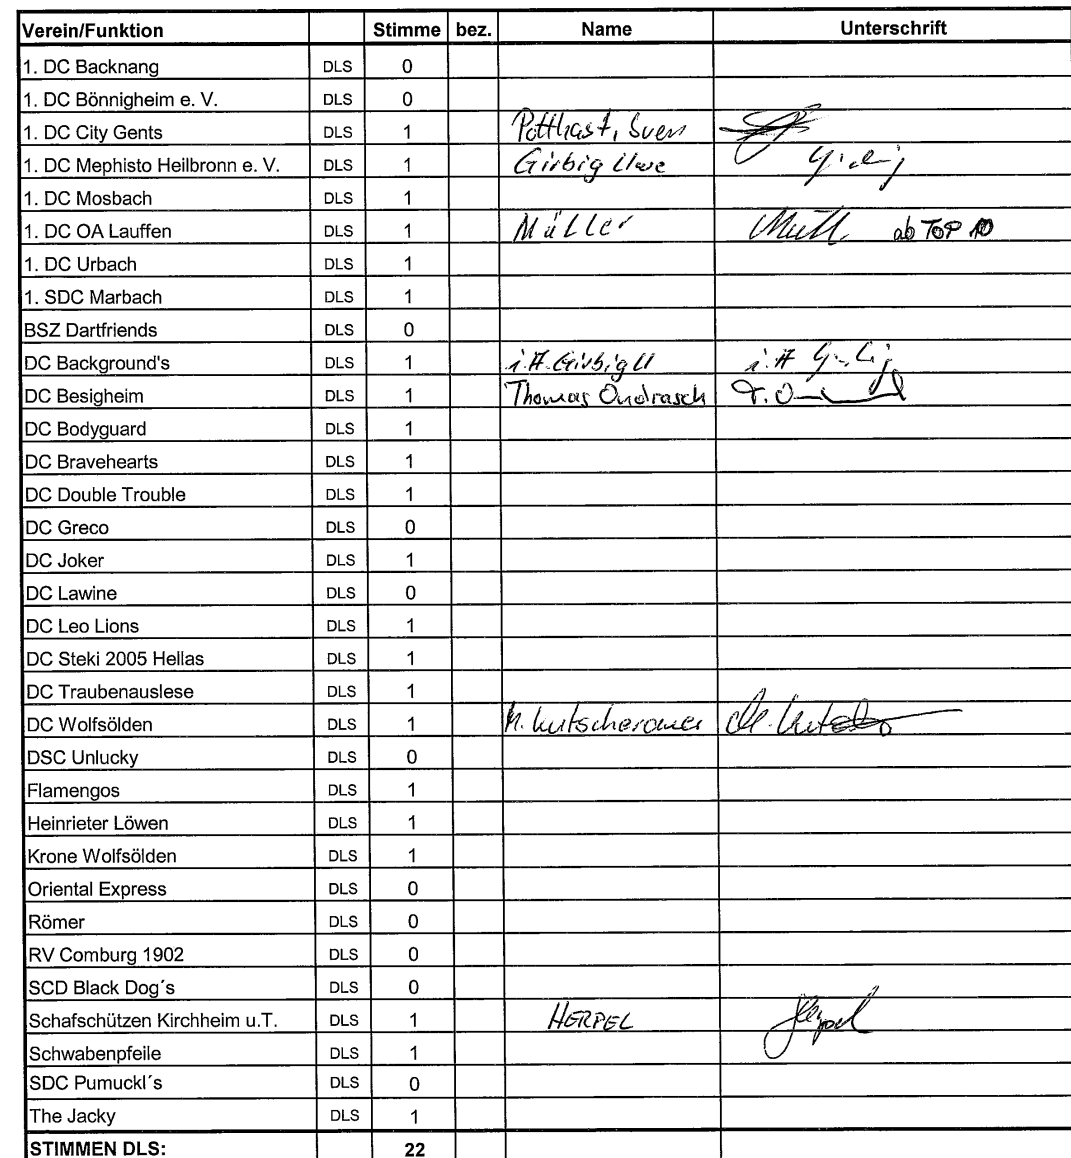 Verein/Funktion Stimme bez. Name Unterschrift
1. DC Backnang DLS 0
1. DC Bönnigheim e. V. DLS 0
1. DC City Gents DLS 1 Potthast, Sven
1. DC Mephisto Heilbronn e. V. DLS 1 Girbig Uwe
1. DC Mosbach DLS 1
1. DC OA Lauffen DLS 1 Müller ab TOP 10
1. DC Urbach DLS 1
1. SDC Marbach DLS 1
BSZ Dartfriends DLS 0
DC Background's DLS 1 i.A. Girbig U i.A
DC Besigheim DLS 1 Thomas Ondrasch
DC Bodyguard DLS 1
DC Bravehearts DLS 1
DC Double Trouble DLS 1
DC Greco DLS 0
DC Joker DLS 1
DC Lawine DLS 0
DC Leo Lions DLS 1
DC Steki 2005 Hellas DLS 1
DC Traubenauslese DLS 1
DC Wolfsölden DLS 1 M.
DSC Unlucky DLS 0
Flamengos DLS 1
Heinrieter Löwen DLS 1
Krone Wolfsölden DLS 1
Oriental Express DLS 0
Römer DLS 0
RV Comburg 1902 DLS 0
SCD Black Dog´s DLS 0
Schafschützen Kirchheim u.T. DLS 1 HERPEL Herpel
Schwabenpfeile DLS 1
SDC Pumuckl´s DLS 0
The Jacky DLS 1
STIMMEN DLS: 22